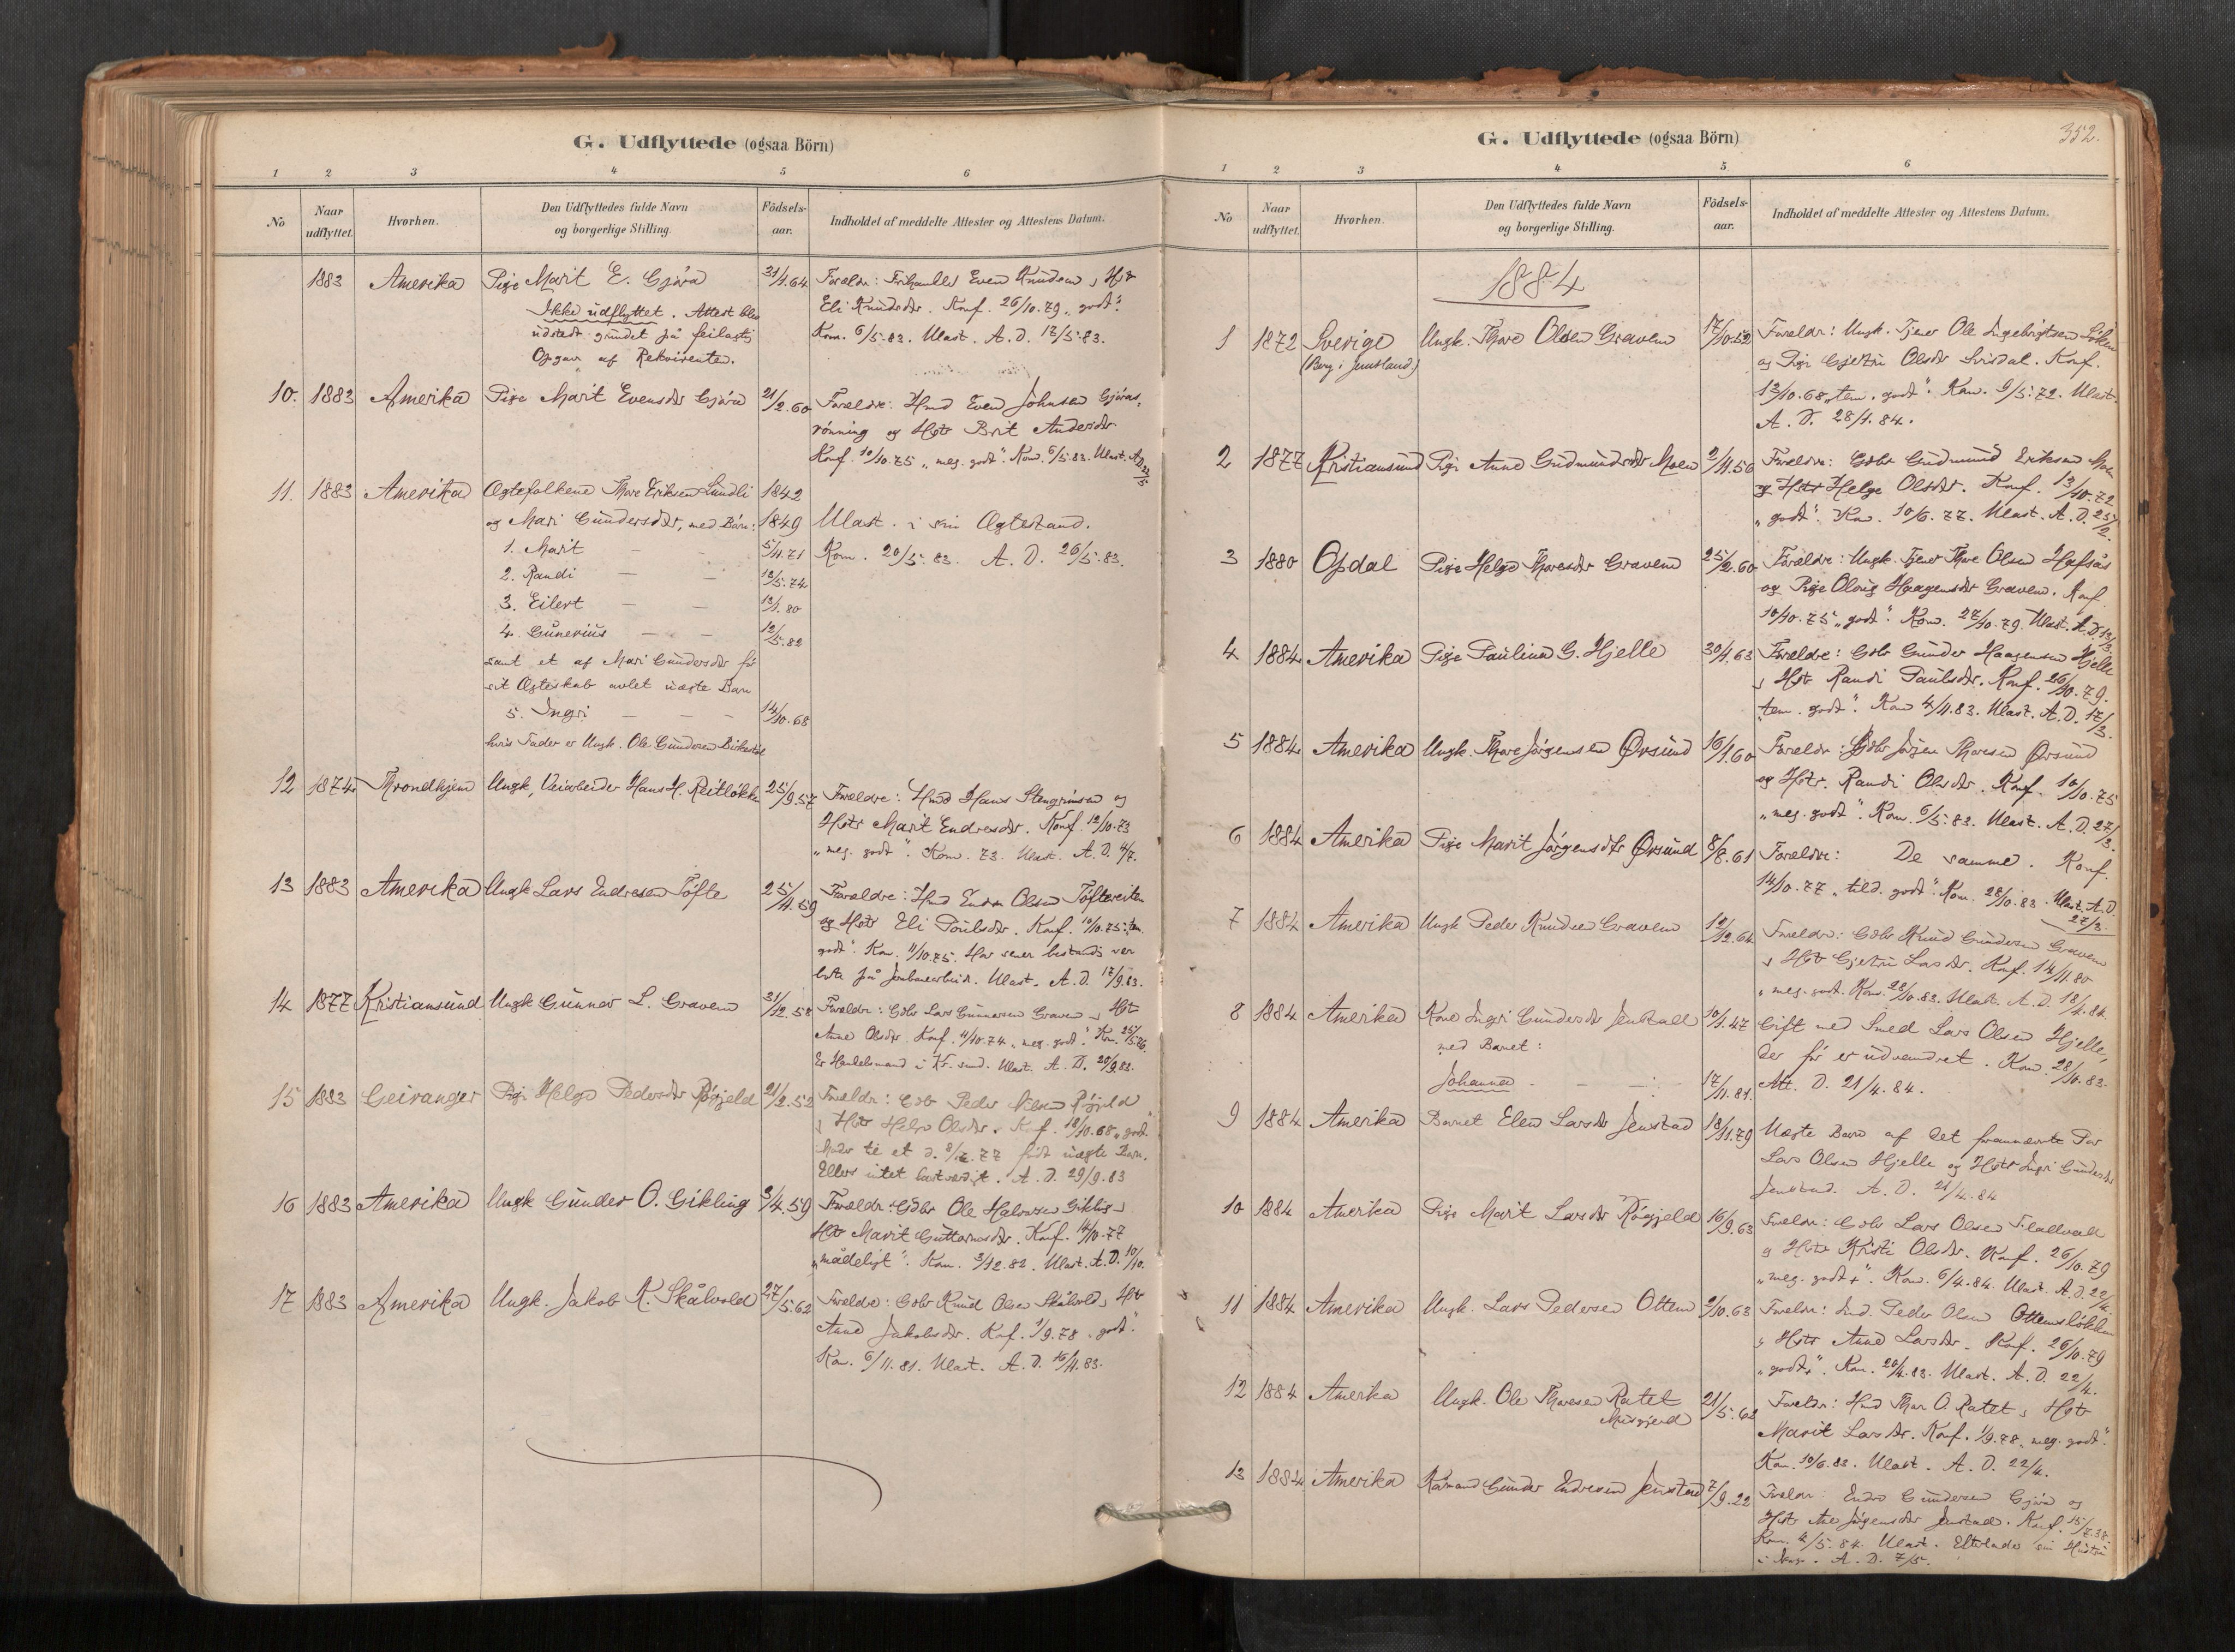 G. Udflyttede (ogsaa Börn)
1 2 3 4 5 6
No Naar udflyttet. Hvorhen. Den Udflyttedes fulde Navn og borgerlige Stilling. Födsels-aar. Indholdet af meddelte Attester og Attestens Datum.
1883 Amerika Pige Marit E. Gjöra 31/1.64 Forældre: Even Knudsen
Ikke udflyttet. Attest blev Eli Knudsdr. Konf. 26/10.79 „godt“.
udstedt grundet på feilagtig Kom. 6/5.83. Ulast. A. D. 12/5.83.
Opgave af Rekvirenten.
10. 1883 Amerika Pige Marit Evensdr Gjöra 21/2.60 Forældre: Hmd Even Johnsen Gjöras-
rönning og Hstr Brit Andersdr.
Konf. 10/10.75 „meg. godt“. Kom. 6/5.83. Ulast. A.D.
11. 1883 Amerika Ægtefolkene Thore Eriksen Lundli 1842
og Mari Gundersdr, med Börn: 1849 Ulast. i sin Ægtestand.
1. Marit — - 5/11.71 Kom. 20/5.83. A. D. 26/5.83.
2. Randi — — 12/5.74
3. Eilert — — 12/1.80
4. Gunerius — - 12/5.82
samt et af Mari Gundersdr för
sit Ægteskab avlet uægte Barn
5. Ingri — - - 14/10.68
hvis Fader er Ungk. Ole Gundersen
12 1874 Throndhjem Ungk, Veiarbeider Hans H. Reitløkken 25/9.57 Forældre: Hmd Hans Stengrimsen og
Hstr Marit Endresdr. Konf. 12/10.73
„meg. godt“. Kom. 73. Ulast. A. D. 4/7.
13 1883 Amerika Ungk Lars Endresen Töfte 25/11.59 Forældre: Hmd Endre Olsen Töftereiten
og Hstr Eli Poulsdr. Konf. 10/10.75 „tem.
godt“. Kom. 11/10.75. Har senere
på Jernbanearbeide. Ulast. A. D. 17/9.83.
14 1877 Kristiansund Ungk Gunnar L. Gravem 31/12.58 Forældre: Gbr Lars Gunnarsen Gravem, Hstr
Anne Olsdr. Konf. 11/10.74 „meg. godt“. Kom.
Er Handelsmand i Kr.sund. Ulast. A. D. 20/9.83.
15 1883 Geiranger Pige Helge Pedersdr Røgjeld 21/2.52 Forældre: Gbr Peder Röjeld
Hstr Helge Olsdr. Konf. 18/10.68 „godt“
Moder til et d. 77 födt uægte Barn.
Ellers intet lastværdigt. A. D. 29/9.83
16 1883 Amerika Ungk Gunder O. Gikling 3/4.59 Forældre: Gbr Ole Halvorsen Gikling,
Hstr Marit Guttormsdr. Konf. 14/10.77
„mådeligt“. Kom. 3/12.82. Ulast. A. D. 10/10.
17 1883 Amerika Ungk. Jakob K. Skålvold 27/5.62 Forældre: Gbr Knud Olsen Skålvold, Hstr
Anne Jakobsdr. Konf. 1/9.78 „godt“.
Kom. 6/11.81. Ulast. A. D. 16/11.83.
G. Udflyttede (ogsaa Börn) 352.
1 2 3 4 5 6
No Naar udflyttet. Hvorhen. Den Udflyttedes fulde Navn og borgerlige Stilling. Födsels-aar. Indholdet af meddelte Attester og Attestens Datum.
1884
1 1872 Sverige Ungk. Thore Olsen Gravem 17/10.52 Forældre: Ungk. Tjener Ole Ingebrigtsen Löken
(Berg i Jemtland) og Pige Gjertru Olsdr Konf.
13/10.68 „tem. godt“. Kom. 9/5.72. Ulast.
A. D. 28/1.84.
2 1877 Kristiansund Pige Anne Gudmundsdr Moen 2/11.56 Forældre: Gbr Gudmund Eriksen Moen
og Hstr Helge Olsdr. Konf. 13/10.72
„godt“. Kom. 10/6.77. Ulast. A. D. 25/2.
3 1880 Opdal Pige Helge Thoresdr Gravem 25/2.60 Forældre: Ungk. Tjener Thore Olsen Hafsås
og Pige Oloug Haagensdr Gravem. Konf.
10/10.75 „godt“. Kom. 27/10.79. Ulast. A. D. 13/3.
4 1884 Amerika Pige Pauline G. Hjelle 30/1.63 Forældre: Gbr Gunder Haagensen Hjelle
Hstr Randi Paulsdr. Konf. 26/10.79.
„tem. godt“. Kom 4/11.83. Ulast. A. D. 17/3.
5 1884 Amerika Ungk. Thore Jörgensen Ørsund 16/1.60 Forældre: Gbr Jörgen Thoresen Ørsund
og Hstr. Randi Olsdr. Konf. 10/10.75
„meg. godt“. Kom. 6/5.83. Ulast. A. D. 27/3.
6 1884 Amerika Pige Marit Jörgensdtr Ørsund 8/8.61 Forældre: De samme. Konf.
14/10.77 „tild. godt“. Kom. 28/10.83. Ulast. A. D.
27/3.
7 1884 Amerika Ungk Peder Knudsen Gravem 12/12.64 Forældre: Gbr Knud Gundersen Gravem
Hstr Gjertru Larsdr. Konf. 14/11.80
„meg. godt. Kom. 28/10.83. Ulast. A. D. 18/4.84.
8 1884 Amerika Kone Ingri Gundersdr Jenstad 10/1.47 Gift med Smed Lars Olsen Hjelle,
med Barnet: der för er udvandret. Kom 28/10.83.
Johanna - — — 17/11.81. Att. D. 21/4.84.
9 1884 Amerika Barnet Elen Larsdr Jenstad 18/11.79 Uægte Barn af det frannævnte Par
Lars Olsen Hjelle og Hstr Ingri Gundersdr
Jenstad. A. D. 21/4.84
10 1884 Amerika Pige Marit Larsdr Rógjeld 16/9.63 Forældre: Gbr Lars Olsen
Hstr Kristi Olsdr. Konf. 26/10.79
„meg. godt+“. Kom. 6/4.84. Ulast. A. D. 22/4.
11 1884 Amerika Ungk. Lars Pedersen Ottem 2/10.63 Forældre: Ind. Peder Olsen Ottemslökken
Hstr Anne Larsdr. Konf. 26/10.79
„godt+“. Kom. Ulast. A. D. 22/4.
12 1884 Amerika Ungk. Ole Thoresen Ratet 21/5.62 Forældre: Hmd Thore O. Ratet, Hstr
Musgjerd Marit Larsdr. Konf. 1/9.78 „meg. godt“.
Kom. 10/6.83. Ulast. A. D. 22/4.
13 1884 Amerika Kårmand Gunder Endresen Jenstad 7/9.22 Forældre: Endre Gundersen Gjöra og
Hstr Ane Jörgensdr Jenstad. Konf. 15/7.38.
Kom. 4/5.84. Ulast. Efterlader sin Hustru
i Norge. A. D. 7/5.